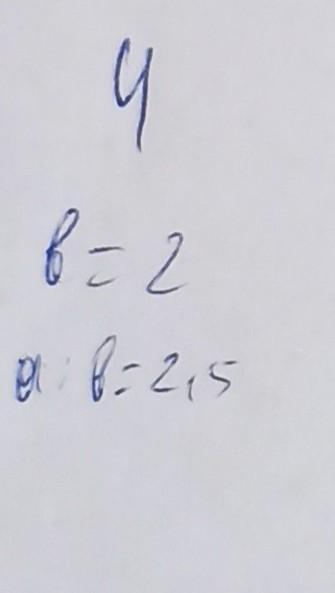 4
b = 2
a : b = 2,5